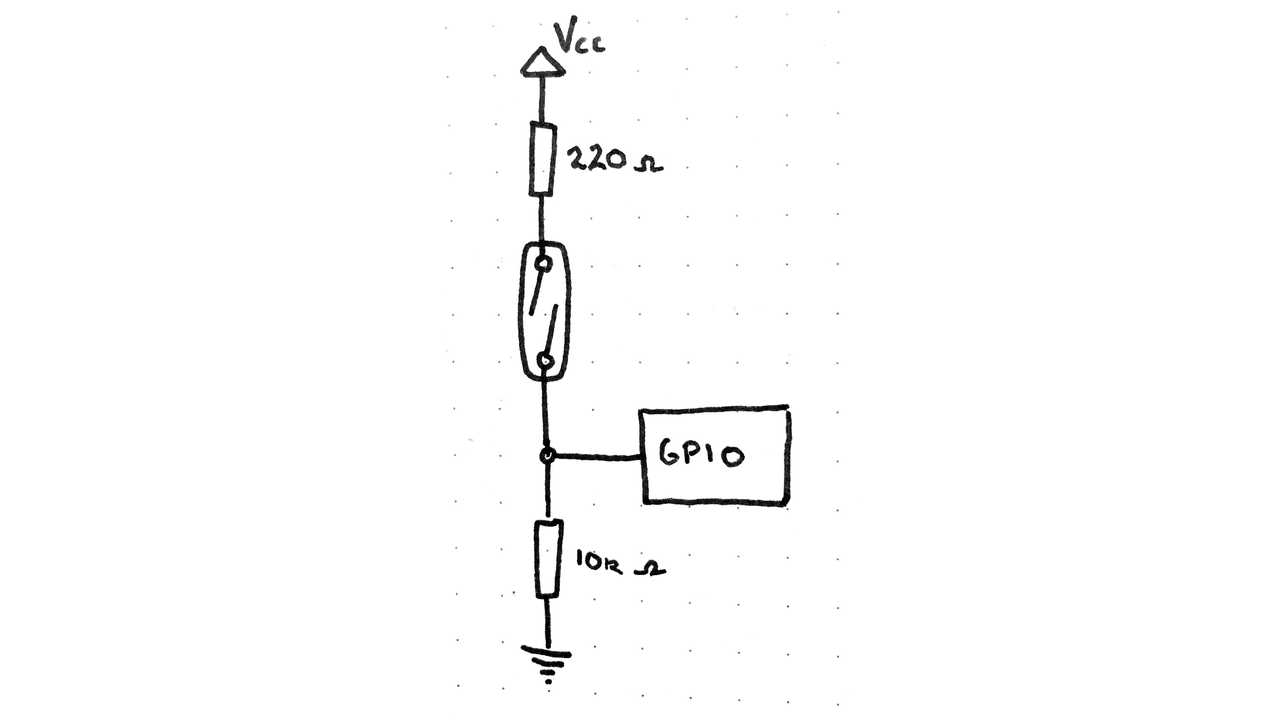 Vcc
220 Ω
GPIO
10k Ω